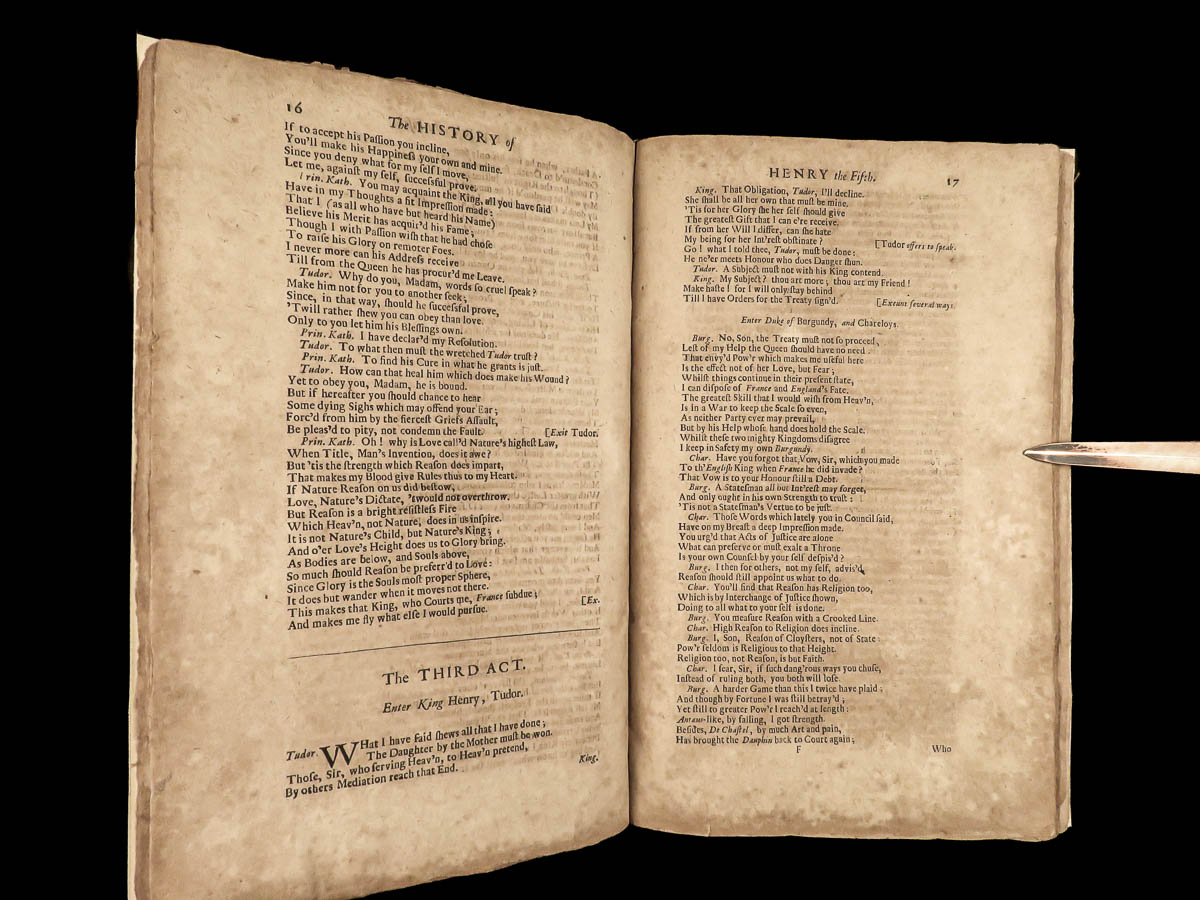 16
The HISTORY of
If to accept his Paſſion you incline,
You'll make his Happineſs your own and mine.
Since you deny what for my ſelf I move,
Let me, againſt my ſelf, ſucceſsful prove.
Prin. Kath. You may acquaint the King, all you have ſaid
Have in my Thoughts a fit Impreſſion made:
That I (as all who have but heard his Name)
Believe his Merit has acquir'd his Fame;
Though I with Paſſion wiſh that he had choſe
To raiſe his Glory on remoter Foes.
I never more can his Addreſs receive
Till from the Queen he has procur'd me Leave.
Tudor. Why do you, Madam, words ſo cruel ſpeak?
Make him not for you to another ſeek;
Since, in that way, ſhould he ſucceſsful prove,
'Twill rather ſhew you can obey than love.
Only to you let him his Bleſſings own.
Prin. Kath. I have declar'd my Reſolution.
Tudor. To what then muſt the wretched Tudor truſt?
Prin. Kath. To find his Cure in what he grants is juſt.
Tudor. How can that heal him which does make his Wound?
Yet to obey you, Madam, he is bound.
But if hereafter you ſhould chance to hear
Some dying Sighs which may offend your Ear;
Forc'd from him by the fierceſt Griefs Aſſault,
Be pleas'd to pity, not condemn the Fault. [Exit Tudor.
Prin. Kath. Oh! why is Love call'd Nature's higheſt Law,
When Title, Man's Invention, does it awe?
But 'tis the ſtrength which Reaſon does impart,
That makes my Blood give Rules thus to my Heart.
If Nature Reaſon on us did beſtow,
Love, Nature's Dictate, 'twould not overthrow.
But Reaſon is a bright reſiſtleſs Fire
Which Heav'n, not Nature, does in us inſpire.
It is not Nature's Child, but Nature's King;
And o'er Love's Height does us to Glory bring.
As Bodies are below, and Souls above,
So much ſhould Reaſon be preferr'd to Love:
Since Glory is the Souls moſt proper Sphere,
It does but wander when it moves not there.
This makes that King, who Courts me, France ſubdue;
And makes me fly what elſe I would purſue. [Ex.
The THIRD ACT.
Enter King Henry, Tudor.
Tudor. WHat I have ſaid ſhews all that I have done;
The Daughter by the Mother muſt be won.
Thoſe, Sir, who ſerving Heav'n, to Heav'n pretend,
By others Mediation reach that End.
King.
HENRY the Fifth.
17
King. That Obligation, Tudor, I'll decline.
She ſhall be all her own that muſt be mine.
'Tis for her Glory ſhe her ſelf ſhould give
The greateſt Gift that I can e're receive.
If from her Will I differ, can ſhe hate
My being for her Int'reſt obſtinate? [Tudor offers to ſpeak.
Go! what I told thee, Tudor, muſt be done;
He ne'er meets Honour who does Danger ſhun.
Tudor. A Subject muſt not with his King contend.
King. My Subject? thou art more; thou art my Friend!
Make haſte! for I will only ſtay behind
Till I have Orders for the Treaty ſign'd. [Exeunt ſeveral ways.
Enter Duke of Burgundy, and Chareloys.
Burg. No, Son, the Treaty muſt not ſo proceed,
Leſt of my Help the Queen ſhould have no need.
That envy'd Pow'r which makes me uſeful here
Is the effect not of her Love, but Fear;
Whilſt things continue in their preſent ſtate,
I can diſpoſe of France and England's Fate.
The greateſt Skill that I would wiſh from Heav'n,
Is in a War to keep the Scale ſo even,
As neither Party ever may prevail,
But by his Help whoſe hand does hold the Scale.
Whilſt theſe two mighty Kingdoms diſagree
I keep in Safety my own Burgundy.
Char. Have you forgot that Vow, Sir, which you made
To th' Engliſh King when France he did invade?
That Vow is to your Honour ſtill a Debt.
Burg. A Stateſman all but Int'reſt may forget,
And only ought in his own Strength to truſt:
'Tis not a Stateſman's Vertue to be juſt.
Char. Thoſe Words which lately you in Council ſaid,
Have on my Breaſt a deep Impreſſion made.
You urg'd that Acts of Juſtice are alone
What can preſerve or muſt exalt a Throne
Is your own Counſel by your ſelf deſpis'd?
Burg. I then for others, not my ſelf, advis'd,
Reaſon ſhould ſtill appoint us what to do.
Char. You'll find that Reaſon has Religion too,
Which is by Interchange of Juſtice ſhown,
Doing to all what to your ſelf is done.
Burg. You meaſure Reaſon with a Crooked Line.
Char. High Reaſon to Religion does incline.
Burg. I, Son, Reaſon of Cloyſters, not of State:
Pow'r ſeldom is Religious to that Height.
Religion too, not Reaſon, is but Faith.
Char. I fear, Sir, if ſuch dang'rous ways you chuſe,
Inſtead of ruling both, you both will loſe.
Burg. A harder Game than this I twice have plaid;
And though by Fortune I was ſtill betray'd;
Yet ſtill to greater Pow'r I reach'd at length:
Antæus-like, by falling, I got ſtrength.
Beſides, De Chaſtel, by much Art and pain,
Has brought the Dauphin back to Court again;
F
Who